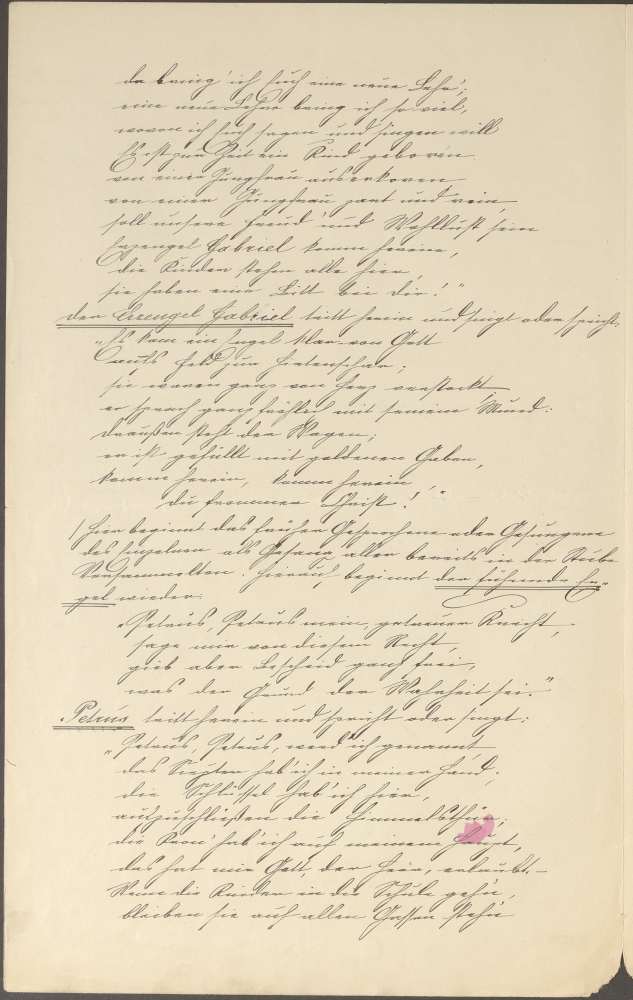 da bring' ich Euch eine neue Lehr';
eine neue Lehre bring ich so viel,
wovon ich Euch sagen und singen will
Es ist zur Zeit ein Kind geboren
von einer Jungfrau auserkoren
von einer Jungfrau zart und rein,
soll unsere Freud' und Wohllust sein
Erzengel Gabriel komm herein,
die Kinder stehen alle hier,
sie haben eine Bitt bei Dir!"
Der Erzengel Gabriel tritt herein und singt oder spricht,
"Es kam ein Engel klar von Gott
auf's Feld zur Hirtenschar;
sie waren ganz von Herz verstockt
er sprach ganz fröhlich mit seinem Mund:
Draußen steht der Wagen;
er ist gefüllt mit goldenen Gaben,
komm herein, komm herein
du frommer Christ!"
/ Hier beginnt das früher Gesprochene oder Gesungene
des Einzelnen als Gesang aller bereits in der Stube
Versammelten. Hierauf beginnt der führende En-
gel wieder:
"Petrus, Petrus mein, getreuer Knecht,
sage mir von diesem Recht,
gieb aber Bescheid ganz frei,
was der Grund der Wahrheit sei."
Petrus tritt herein und spricht oder singt:
"Petrus, Petrus, werd' ich genannt,
das Szepter hab' ich in meiner Hand;
die Schlüssel hab' ich hier,
aufzuschließen die Himmelsthür;
die Kron' hab' ich auf meinem Haupt,
das hat mir Gott, der Herr, erlaubt. –
Wenn die Kinder in die Schule gehn,
bleiben sie auf allen Gassen stehn